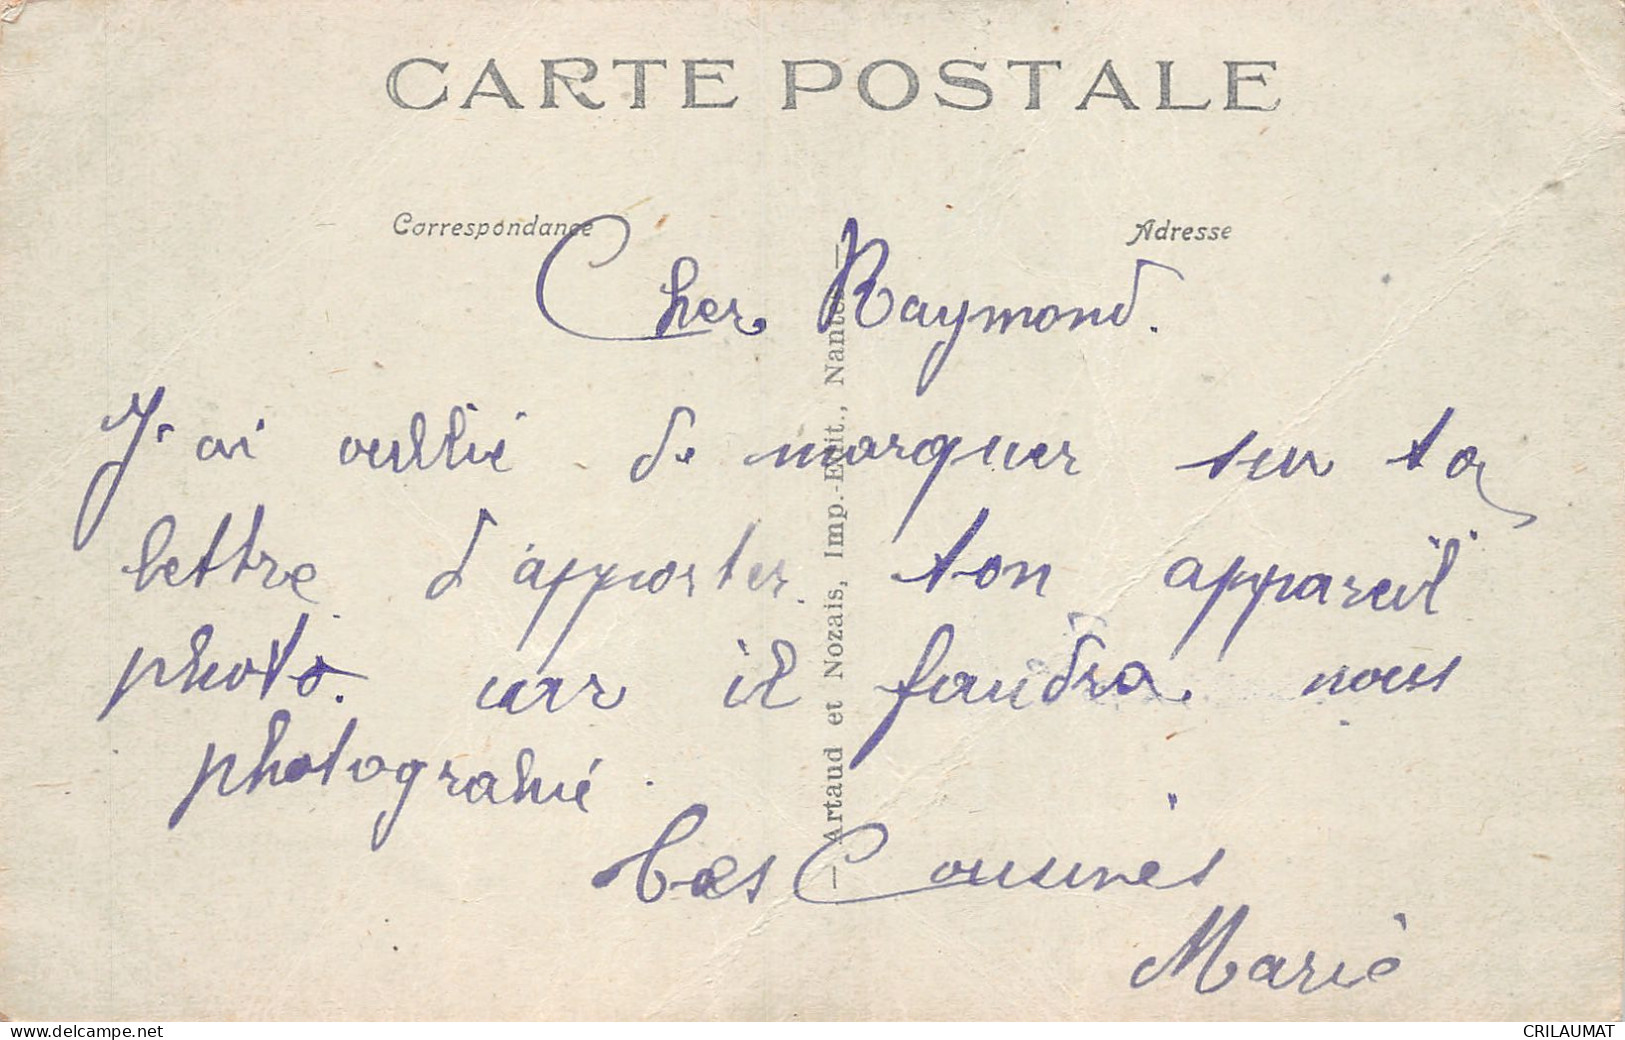 CARTE POSTALE
Correspondance
Adresse
Cher Raymond.
J'ai oublié de marquer sur ta
lettre d'apporter ton appareil
photo. car il faudra nous
photograhié.
Tes Cousines
Marie
— Artaud et Nozais, Imp.-Édit., Nantes —
delcampe.net
CRILAUMAT